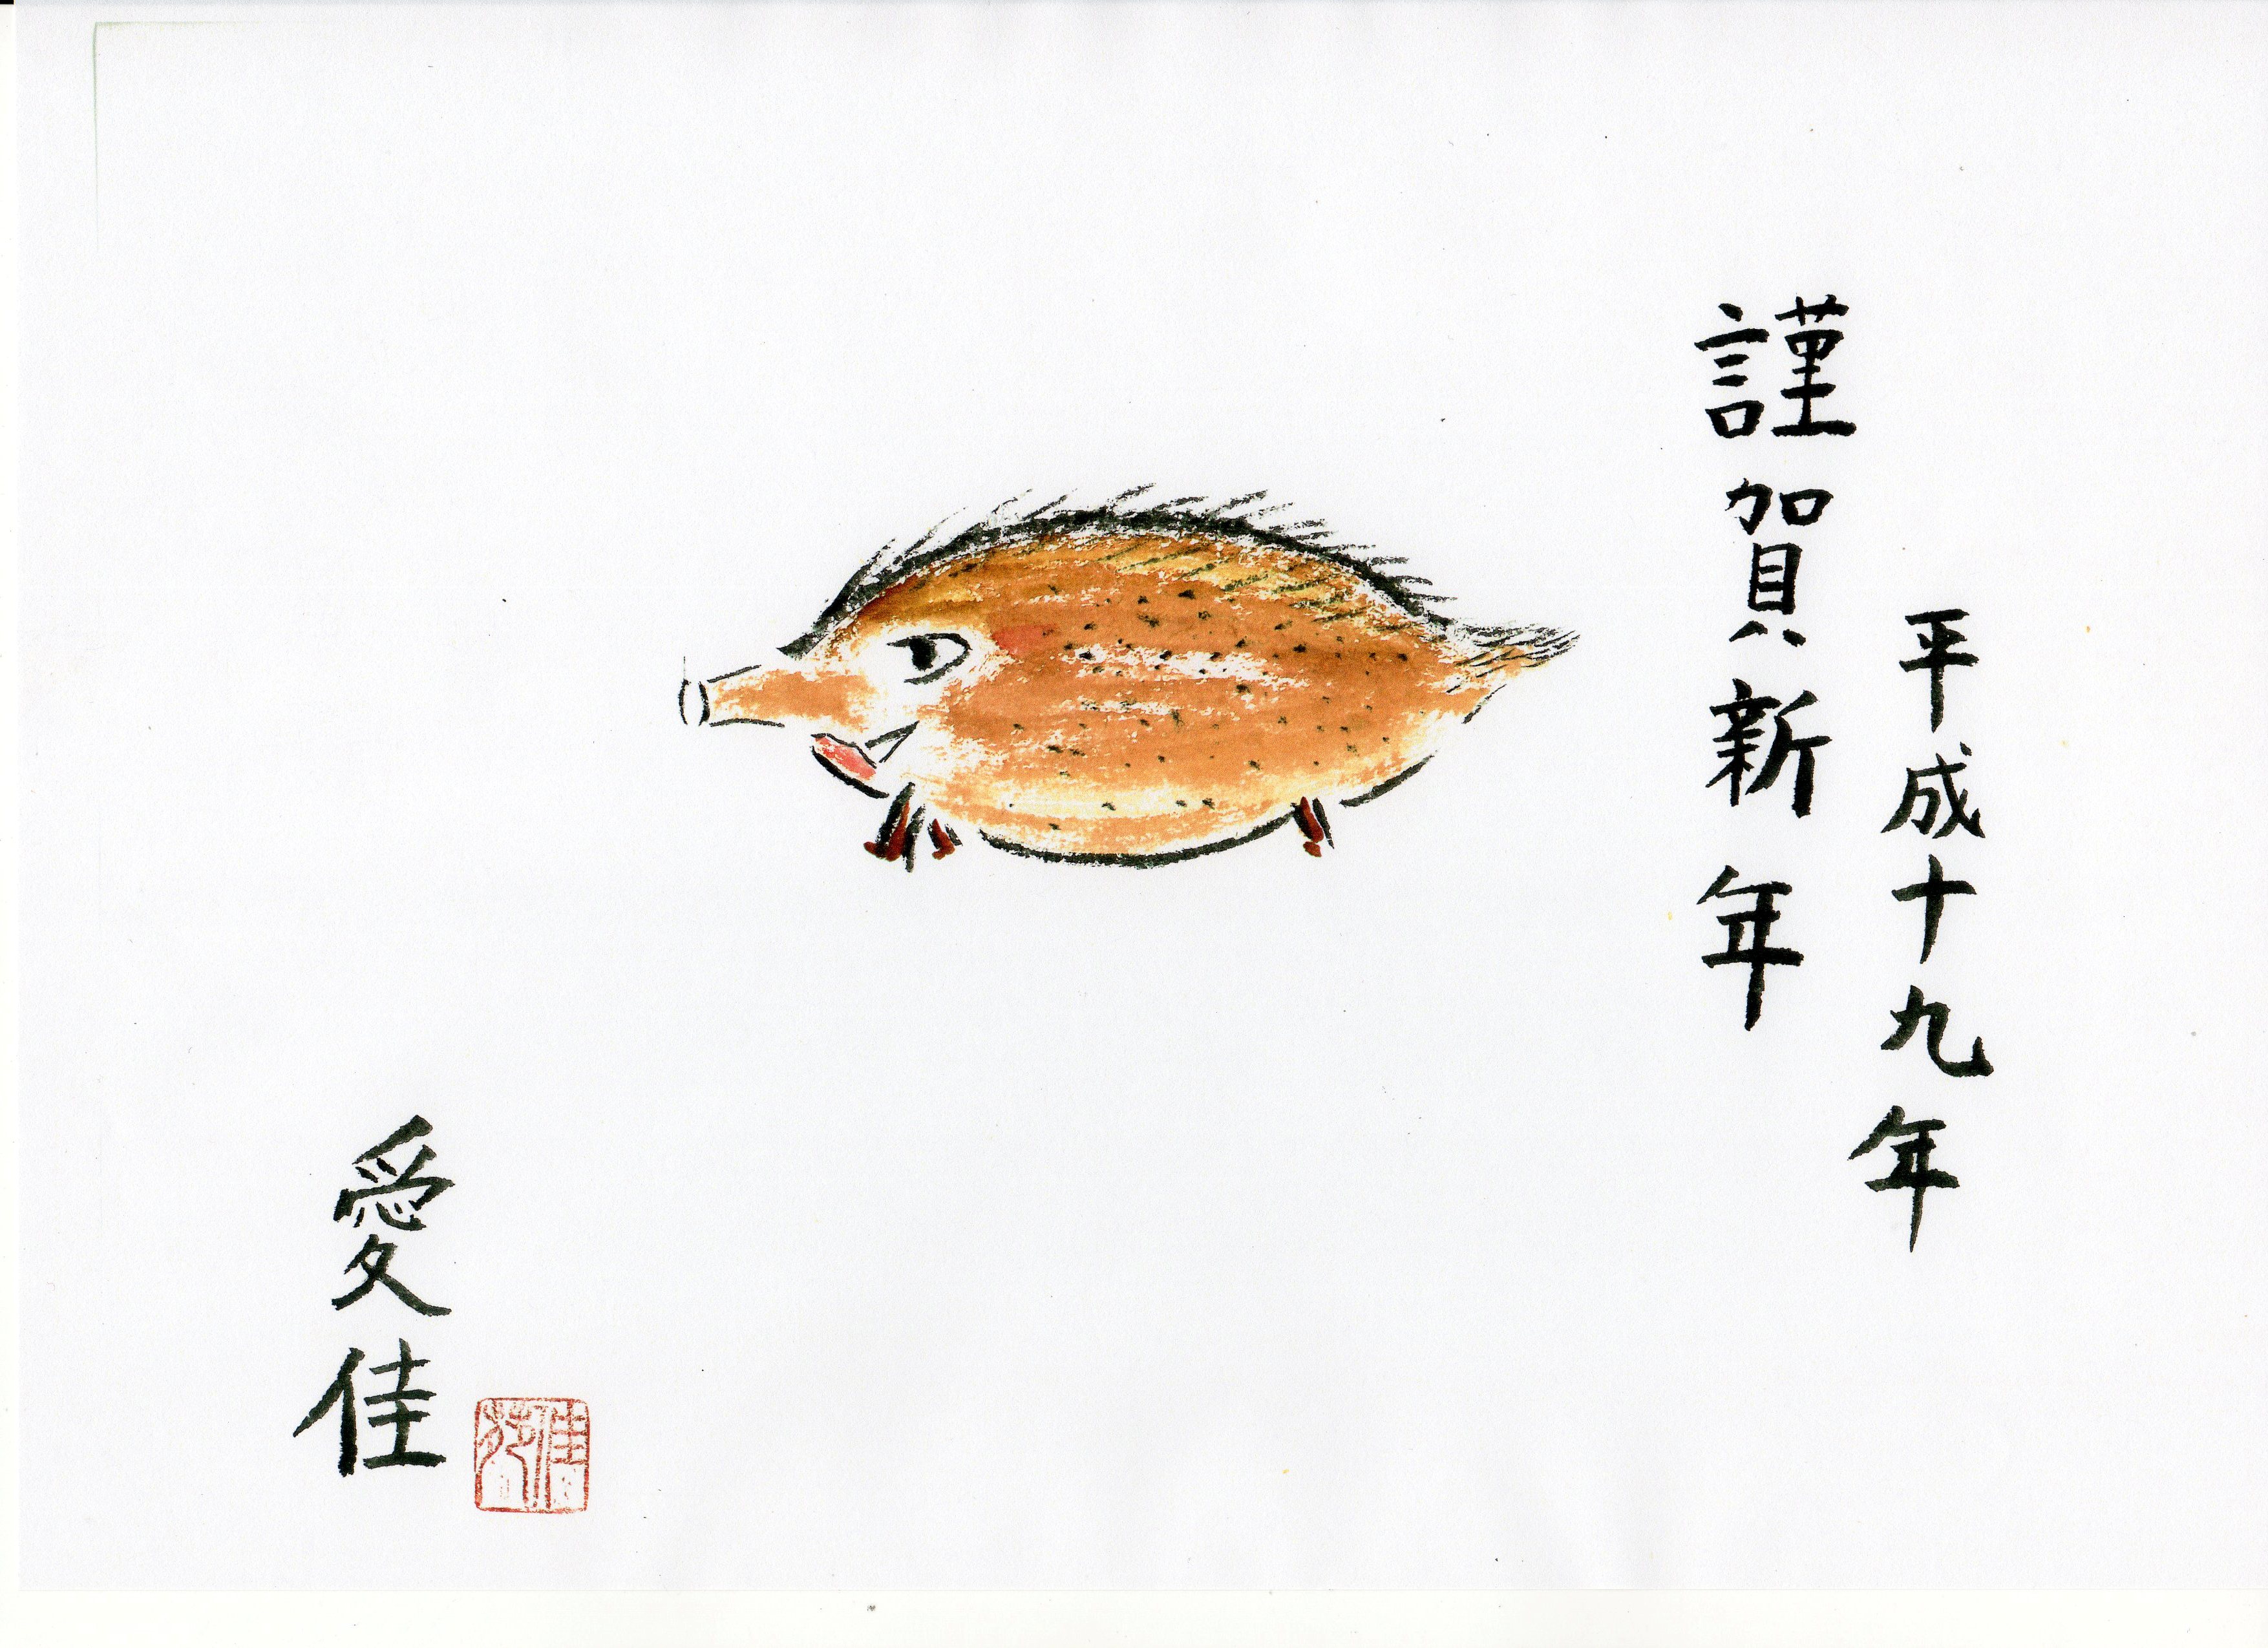 謹賀新年
平成十九年
愛佳